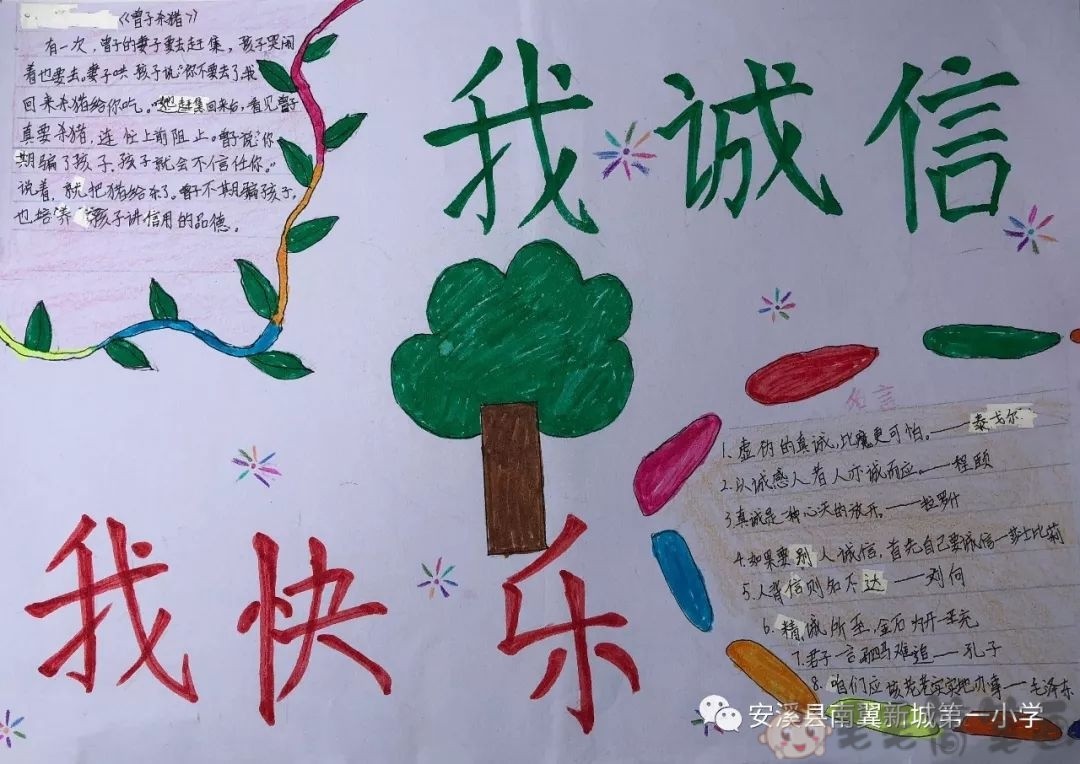 《曾子杀猪》
有一次，曾子的妻子要去赶集，孩子哭闹
着也要去。妻子哄孩子说“你不要去了我
回来杀猪给你吃。”她赶集回来后，看见曾子
真要杀猪，连忙上前阻止。曾子说“你
期骗了孩子，孩子就会不信任你。”
说着，就把猪给杀了。曾子不期骗孩子，
也培养 孩子讲信用的品德。
我诚信
我快乐
名言
1、虚伪的真诚，比魔更可怕。——泰戈尔
2、以诚感人者人亦诚而应。——程颐
3、真诚是一种心灵的放开。——拉罗什
4、如果要别人诚信，首先自己要诚信—莎士比莉
5、人背信则名不达——刘向
6、精诚所至，金石为开—王充
7、君子一言驷马难追——孔子
8、咱们应该老老实实地办事——毛泽东
安溪县南翼新城第一小学